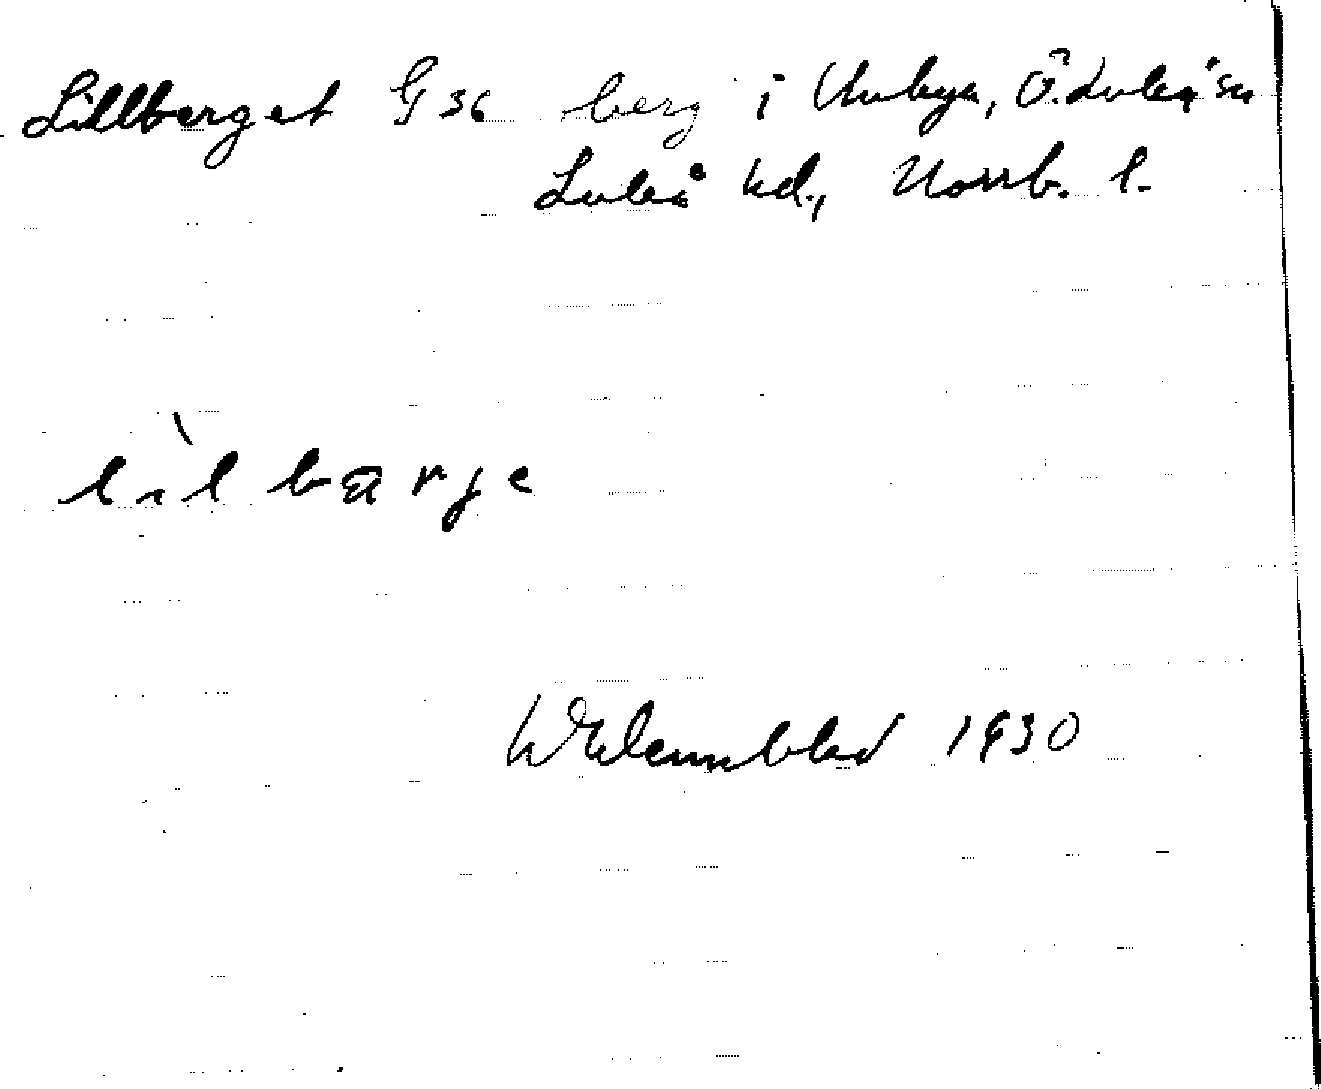 Lillberget G 36 berg i Unbyn, Ö. Luleå sn
Luleå hd., Norrb. l.
lìl bærje
Wretemblad 1930